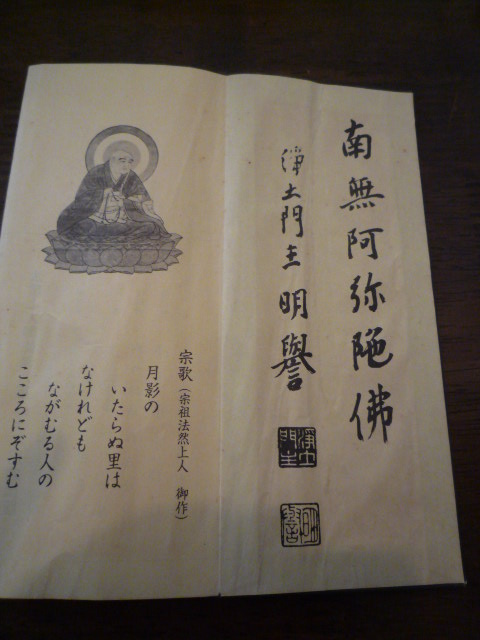 南無阿弥陀佛
浄土門主 明譽
浄土
門主
明
譽
宗歌（宗祖法然上人 御作）
月影の
いたらぬ里は
なけれども
ながむる人の
こころにぞすむ